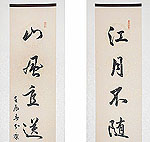 江月不随
山風直送